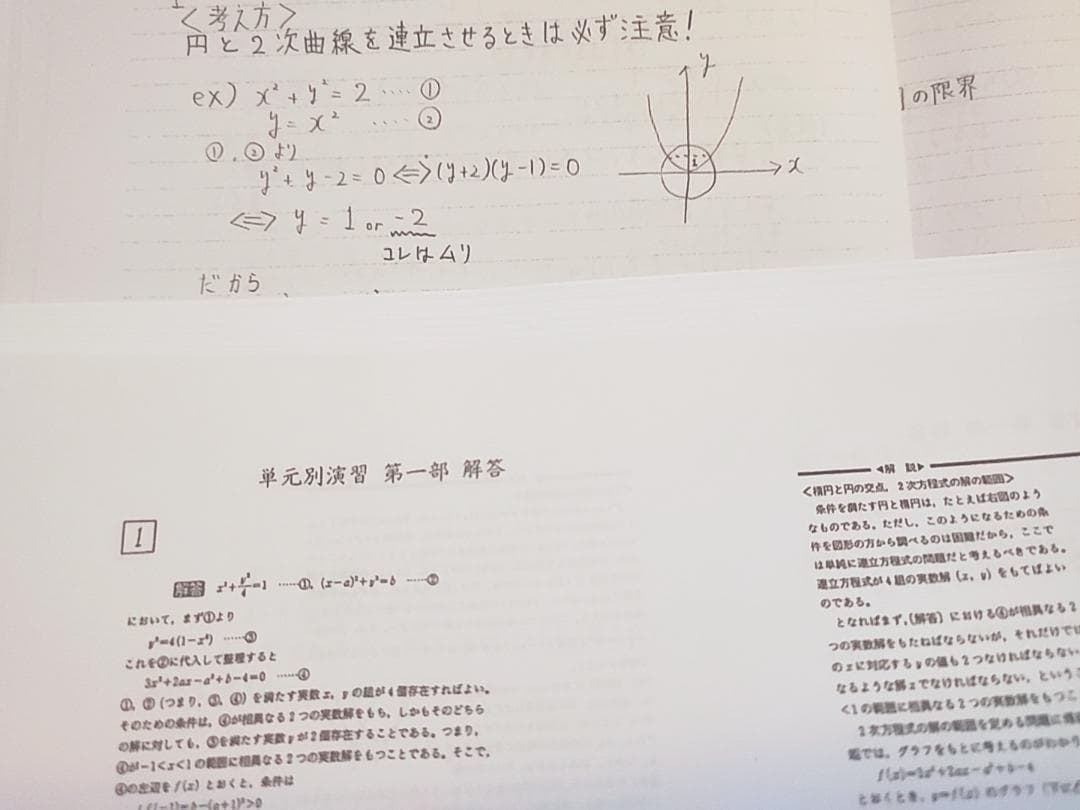 <考え方>
円と2次曲線を連立させるときは必ず注意!
ex) x²+y²=2 ‥‥ ①
y=x² ‥‥ ②
①,②より
y²+y-2=0⇔(y+2)(y-1)=0
⇔ y=1 or -2
コレはムリ
だから
y
x
の限界
単元別演習 第一部 解答
1
解答 x²+y²/4=1 ……①, (x-a)²+y²=b ……②
において,まず①より
y²=4(1-x²) ……③
これを②に代入して整理すると
3x²+2ax-a²+b-4=0 ……④
①,②(つまり,③,④)を満たす実数x,yの組が4個存在すればよい。
そのための条件は,④が相異なる2つの実数解をもち,しかもそのどちら
の解に対しても,③を満たす実数yが2個存在することである。つまり,
④が-1<x<1の範囲に相異なる2つの実数解をもつことである。そこで,
④の左辺をf(x)とおくと,条件は
f(-1)=b-(a+1)²>0
◀解 説▶
<楕円と円の交点,2次方程式の解の範囲>
条件を満たす円と楕円は,たとえば右図のよう
なものである。ただし,このようになるための条
件を図形の方から調べるのは困難だから,ここで
は単純に連立方程式の問題だと考えるべきである。
連立方程式が4組の実数解(x,y)をもてばよい
のである。
となればまず,〔解答〕における④が相異なる2
つの実数解をもたねばならないが,それだけでは
のxに対応するyの値も2つなければならない
なるような解xでなければならない,というこ
<1の範囲に相異なる2つの実数解をもつこ
2次方程式の解の範囲を定める問題に
題では,グラフをもとに考えるのがわかり
f(x)=3x²+2ax-a²+b-4
とおくとき,y=f(x)のグラフ